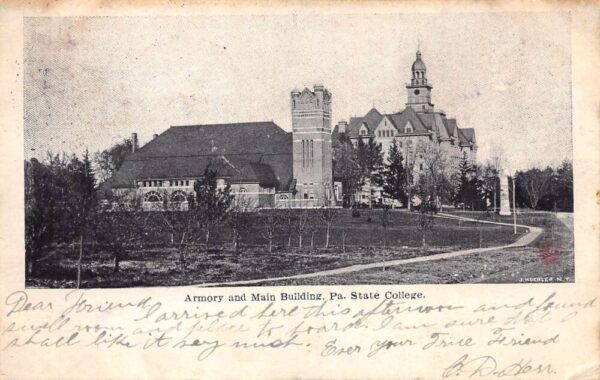 J. KOEHLER N.Y.
Armory and Main Building, Pa. State College.
Dear Friend I arrived here this afternoon and found
small room and place to board. I am sure that I
shall like it very much. Ever your True Friend
C. D. Herr.